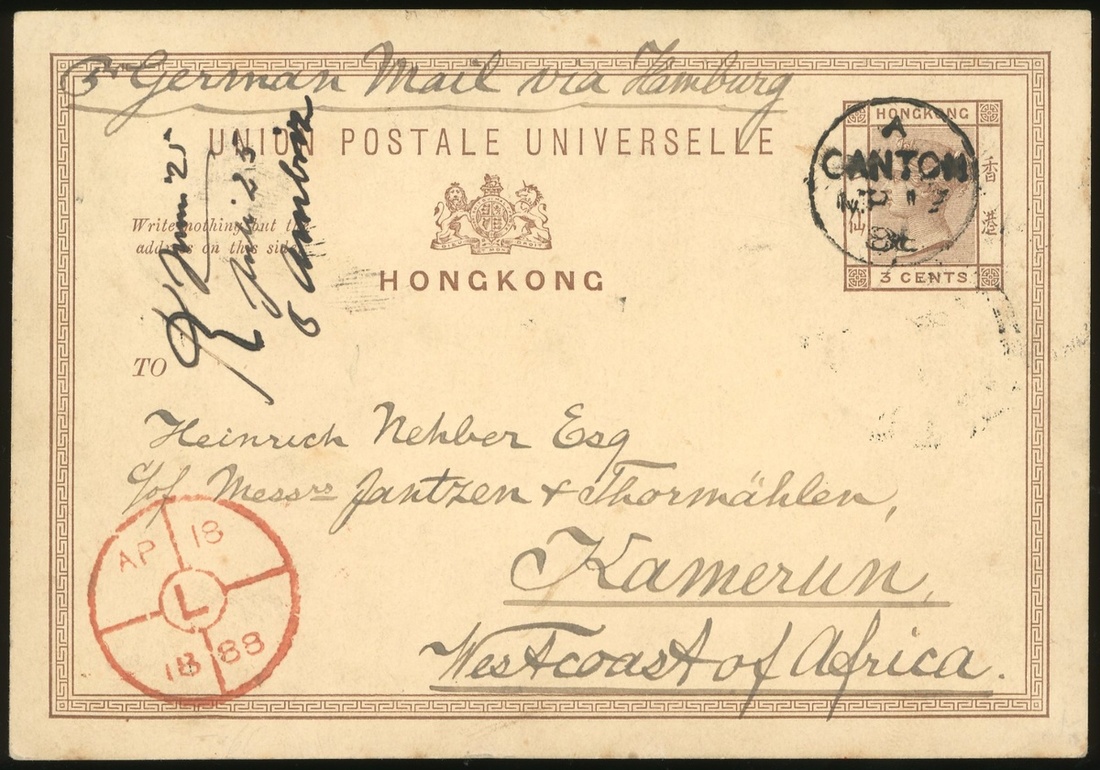 pr German Mail via Hamburg
UNION POSTALE UNIVERSELLE
HONGKONG
香港
3 CENTS
A
CANTON
88
Write nothing but the
address on this side.
HONGKONG
TO
Heinrich Nehber Esq
c/of Messrs Jantzen & Thormählen,
Kamerun,
Westcoast of Africa.
AP 18
L
18 88